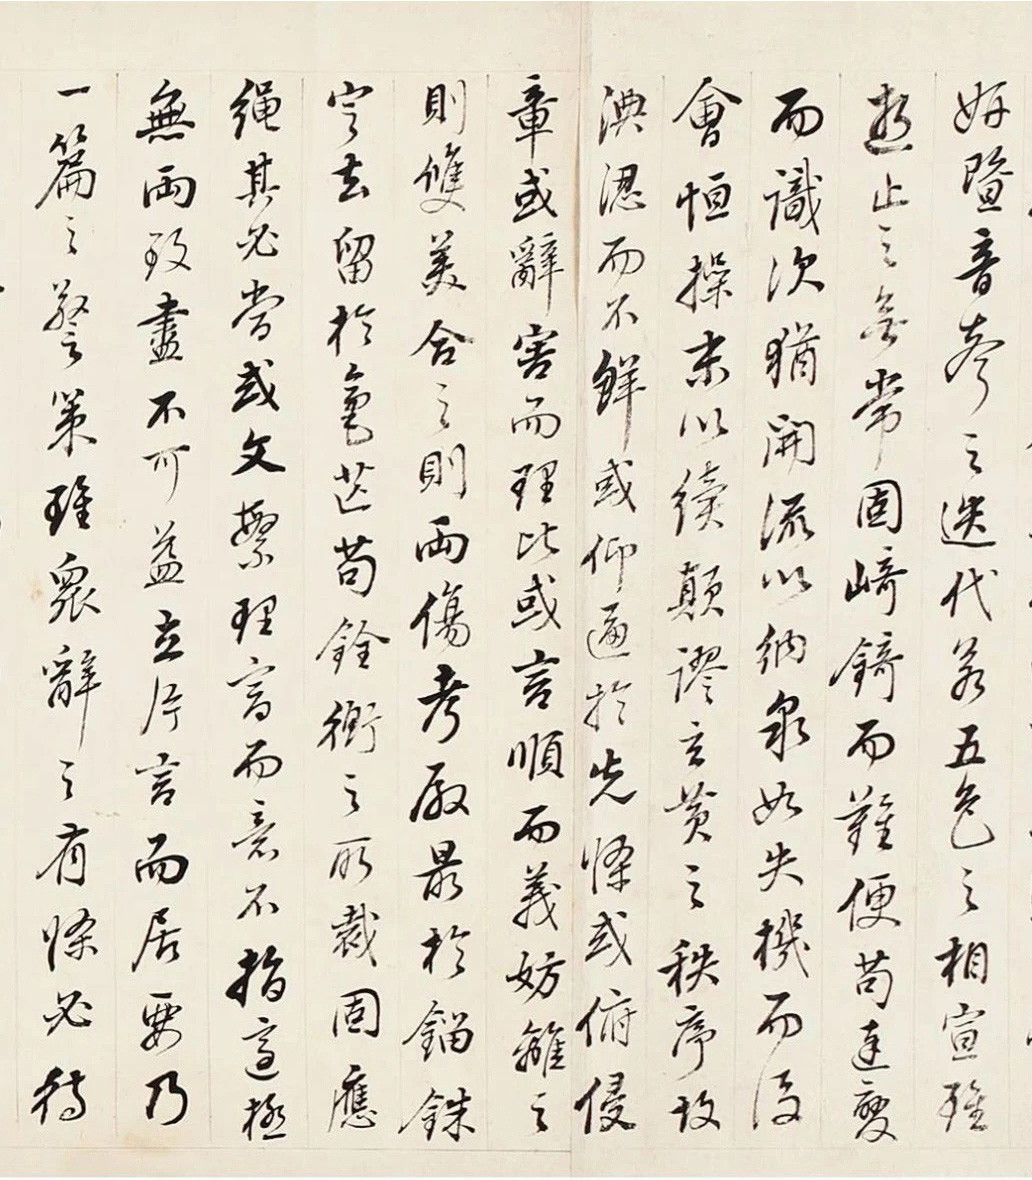 妍暨音聲之迭代若五色之相宣雖
逝止之無常固崎錡而難便苟達變
而識次猶開流以納泉如失機而後
會恒操末以續顛謬玄黃之秩序故
淟涊而不鮮或仰逼於先條或俯侵
章或辭害而理比或言順而義妨離之
則雙美合之則兩傷考殿最於錙銖
定去留於毫芒苟銓衡之所裁固應
繩其必當或文繁理富而意不指適極
無兩致盡不可益立片言而居要乃
一篇之警策雖衆辭之有條必待